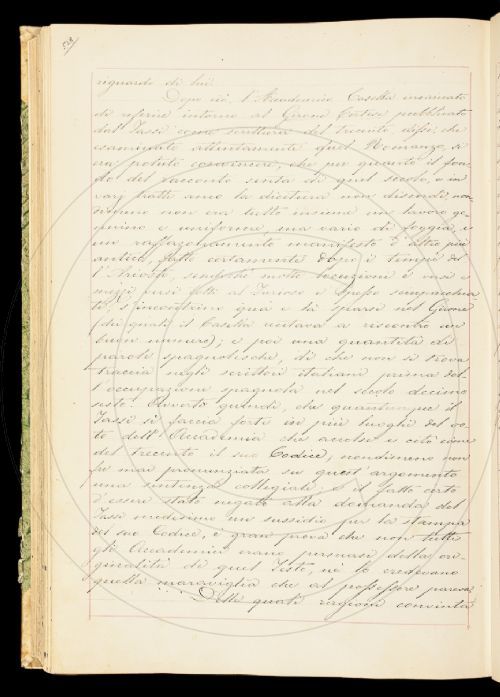 528
riguardo di lui.
Dopo ciò, l'Accademico Casella incaricato
di riferire intorno al Girone Cortese pubblicato
dal Tassi come scrittura del trecento, disse che
esaminato attentamente quel Romanzo, si
era potuto convincere, che per quanto il fon-
do del racconto senta di quel secolo, e in
vary tratti anco la dicitura non disordi, non-
dimeno non era tutto insieme un lavoro ge-
nuino e uniforme, ma vario di foggia, e
un raffazzonamento manifesto d'altro più
antico, fatto certamente dopo i tempi del
l'Ariosto, siccome molte locuzioni e versi e
mezzi versi fatti al Furioso e spesso
ti, s'incontrino quà e là sparsi nel Girone
(dei quali il Casella recitava a riscontro un
buon numero); e poi una quantità di
parole spagnolesche, di che non si trova
traccia negli scrittori italiani prima del-
l'occupazione spagnola nel secolo decimo
sesto. Avvertì quindi, che quantunque il
Tassi si faccia forte in più luoghi del vo-
to dell'Accademia che accolse e citò come
del trecento il suo Codice, nondimeno non
fu mai pronunziata su quest'argomento
una sentenza collegiale; e il fatto certo
d'essere stato negato alla domanda del
Tassi medesimo un sussidio per la stampa
del suo Codice, è gran prova che non tutti
gli Accademici erano persuasi della ori-
ginalità di quel Testo, nè lo credevano
quella maraviglia che al possessore pareva.
Delle quali ragioni convinta